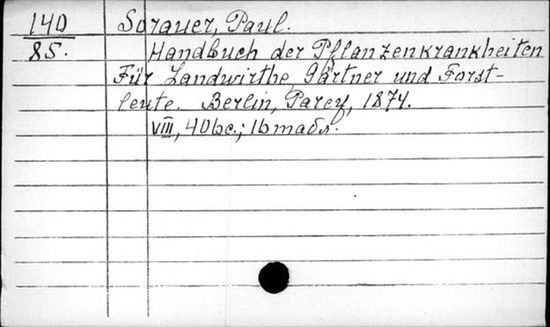 140 Sorauer, Paul.
85. Handbuch der Pflanzenkrankheiten
Für Landwirthe, Gärtner und Forst-
leute. Berlin, Parey, 1874.
VIII, 406 с.; 16 табл.